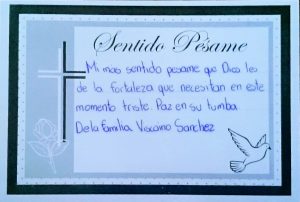 Sentido Pésame
Mi mas sentido pesame que Dios les
de la fortaleza que necesitan en este
momento triste. Paz en su tumba.
De la familia Vizcaino Sanchez